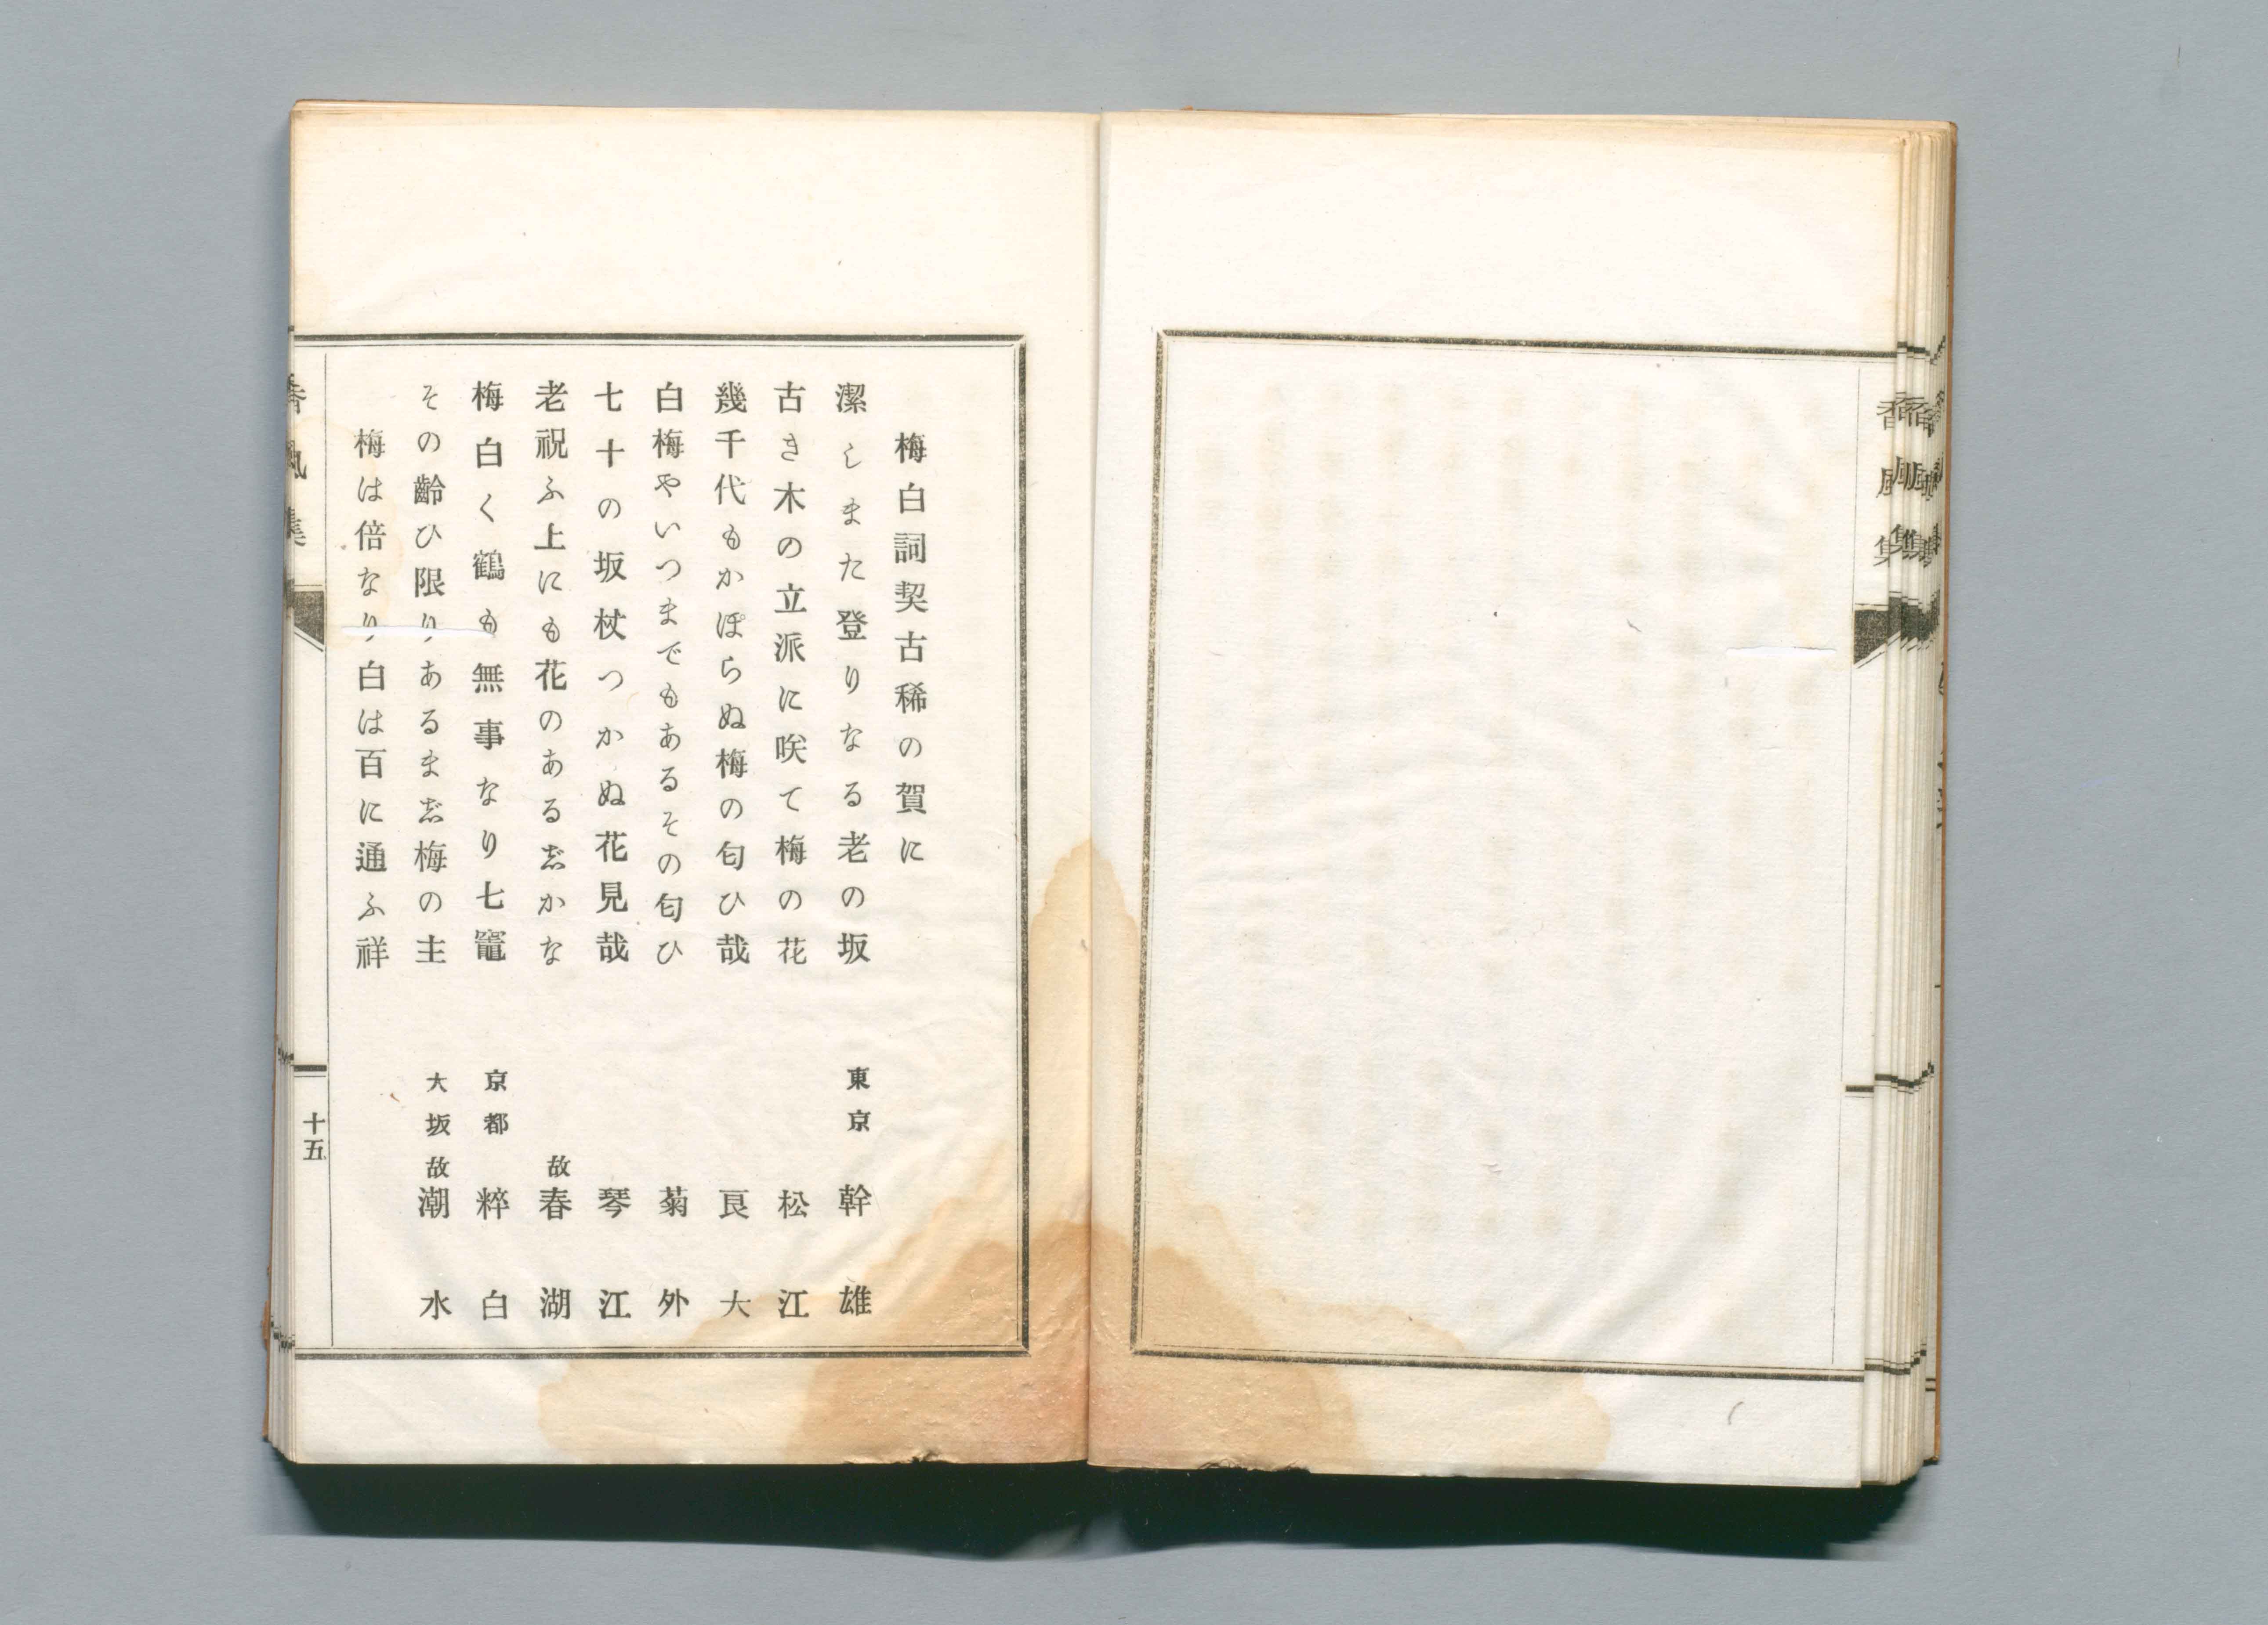 香風集
梅白詞契古稀の賀に
潔しまた登りなる老の坂　東京　幹雄
古き木の立派に咲て梅の花　松江
幾千代もかぽらぬ梅の匂ひ哉　良大
白梅やいつまでもあるその匂ひ　菊外
七十の坂杖つかぬ花見哉　琴江
老祝ふ上にも花のあるじかな　故　春湖
梅白く鶴も無事なり七竈　京都　粹白
その齡ひ限りあるまじ梅の主　大坂　故　潮水
梅は倍なり白は百に通ふ祥
香風集
十五